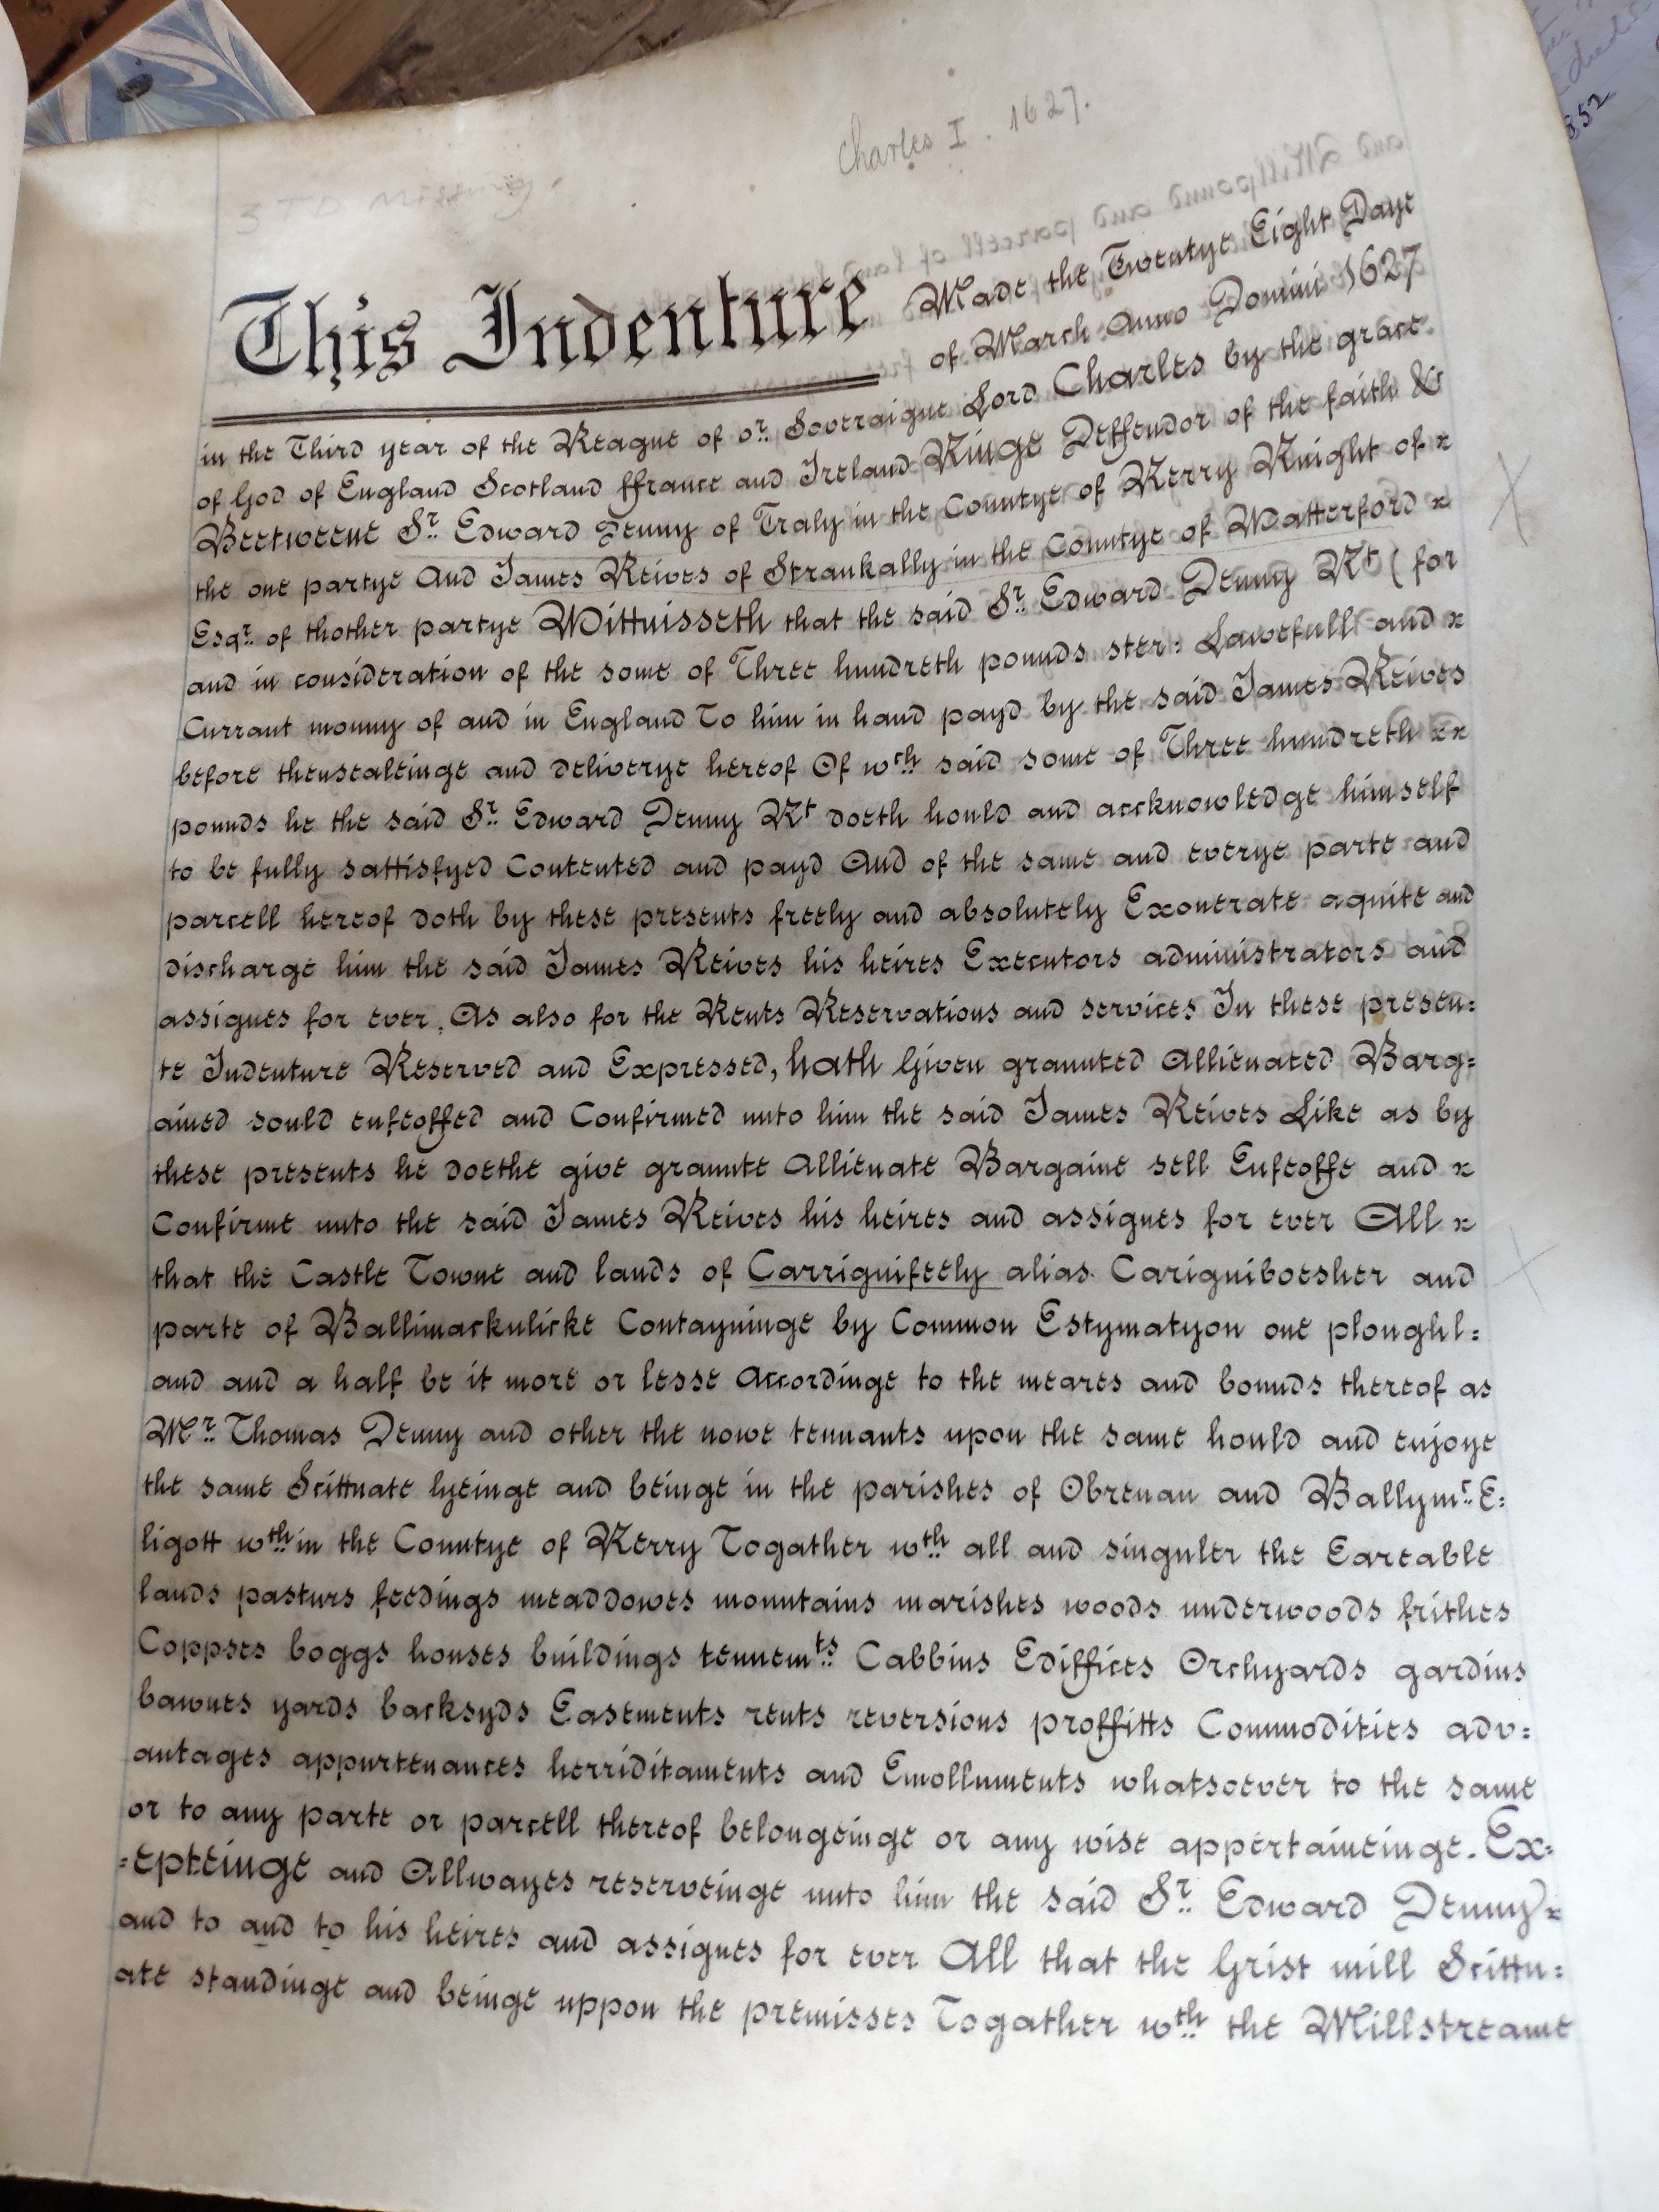 Charles I. 1627.
3 TD missing.
This Indenture Made the Twentye Eight Daye
of March Anno Domini 1627
in the Third year of the Reague of or. Soveraigne Lord Charles by the grace
of God of England Scotland ffrance and Ireland Kinge Deffendor of the faith &c
Beetweene Sr. Edward Denny of Traly in the Countye of Kerry Knight of x
the one partye And James Reives of Strankally in the Countye of Watterford x
Esqr. of thother partye Wittnisseth that the said Sr. Edward Denny Kt (for
and in consideration of the some of Three hundreth pounds ster: Lawefull and x
Currant monny of and in England To him in hand payd by the said James Reives
before thensealeinge and deliverye hereof Of wch said some of Three hundreth xx
pounds he the said Sr. Edward Denny Kt doeth hould and accknowledge himself
to be fully sattisfyed Contented and payd And of the same and everye parte and
parcell hereof doth by these presents freely and absolutely Exonerate aquite and
discharge him the said James Reives his heires Executors administrators and
assignes for ever, As also for the Rents Reservations and services In these presen:
te Indenture Reserved and Expressed, hath Given graunted Allienated Barg:
ained sould enfeoffed and Confirmed unto him the said James Reives Like as by
these presents he doethe give graunte Allienate Bargaine sell Enfeoffe and x
Confirme unto the said James Reives his heires and assignes for ever All x
that the Castle Towne and lands of Carrignifeely alias Carigniboesher and
parte of Ballimackulicke Contayninge by Common Estymatyon one ploughl:
and and a half be it more or lesse Accordinge to the meares and bounds thereof as
Mr. Thomas Denny and other the nowe tennants upon the same hould and enjoye
the same Scittuate lyeinge and beinge in the parishes of Obrenan and Ballymc. E:
ligott wth in the Countye of Kerry Togather wth all and singuler the Eareable
lands pasturs feedings meaddowes mountains marishes woods underwoods frithes
Coppses boggs houses buildings tennemts. Cabbins Ediffices Orchyards gardins
bawnes yards backsyds Easements rents reversions proffitts Commodities adv:
antages appurtenances herriditaments and Emolluments whatsoever to the same
or to any parte or parcell thereof belongeinge or any wise appertaineinge. Ex:
:epteinge and Allwayes reserveinge unto him the said Sr. Edward Denny x
and to and to his heires and assignes for ever All that the Grist mill Scittu:
ate standinge and beinge uppon the premisses Togather wth the Millstreame